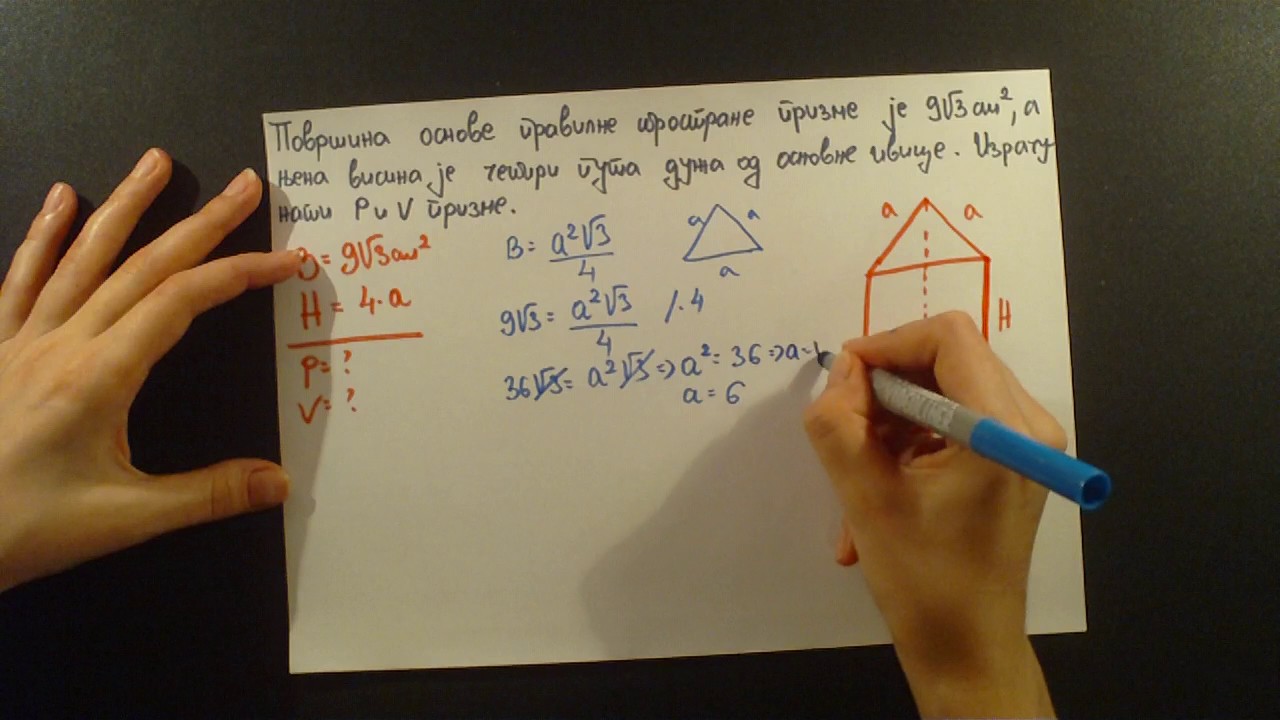 Површина основе правилне тростране призме је 9√3 cm², а
њена висина је четири пута дужа од основне ивице. Израчу
нати P и V призме.
B = 9√3 cm²
H = 4·a
P = ?
V = ?
B = a²√3/4
9√3 = a²√3/4 /·4
36√3 = a²√3 => a² = 36 => a =
a = 6
a a
a
a a
H